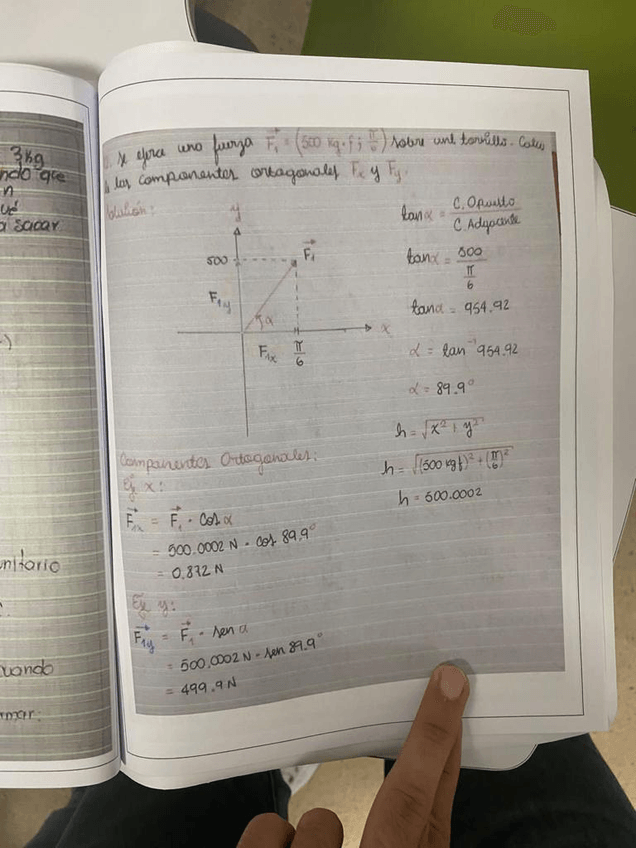 3kg
ndo que
n
ué
a sacar
se ejerce una fuerza F₁ = (500 kg·f ; π/6) sobre un tornillo. Calcu
las componentes ortogonales Fx y Fy.
olución:
y
500
F₁
F₁y
α
x
F₁x
π/6
tanα = C. Opuesto / C. Adyacente
tanα = 500 / π/6
tanα = 954.92
α = tan⁻¹ 954.92
α = 89.9°
h = √x² + y²
h = √(500 kgf)² + (π/6)²
h = 500.0002
Componentes Ortogonales:
Eje x:
F₁x = F₁ · Cos α
= 500.0002 N · cos 89.9°
= 0.872 N
Eje y:
F₁y = F₁ · sen α
= 500.0002 N · sen 89.9°
= 499.9 N
nitario
uando
mar: